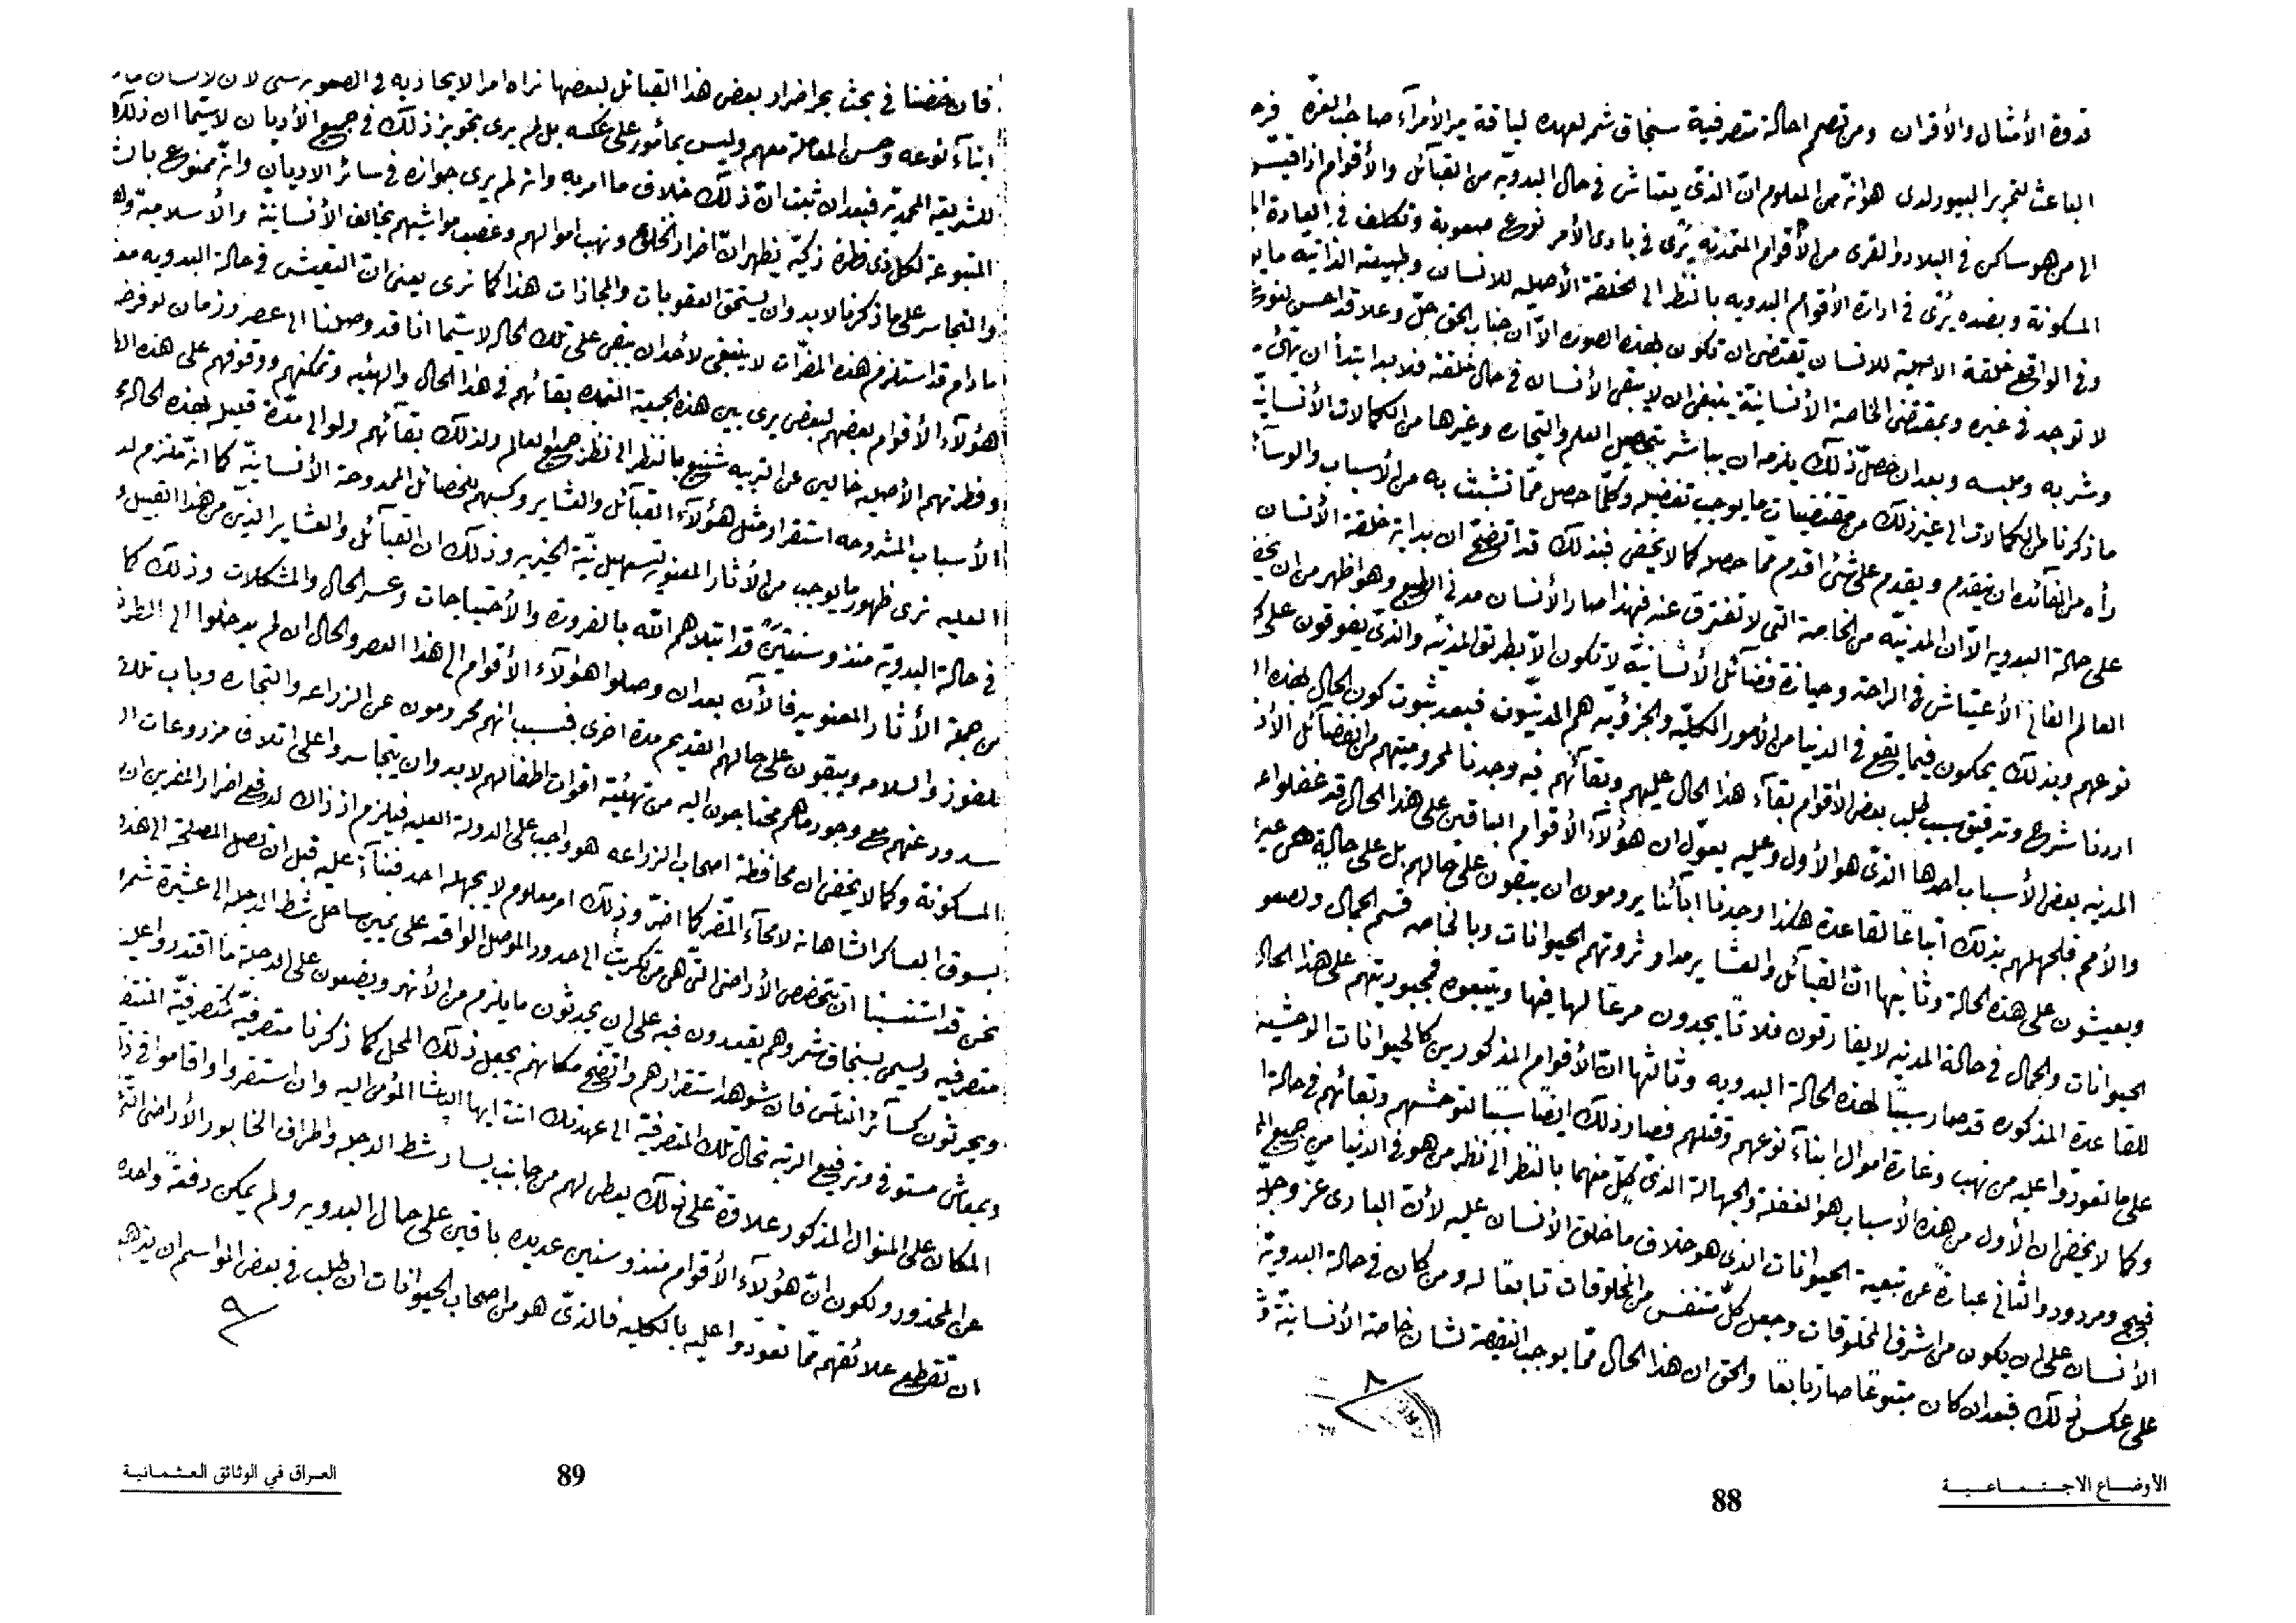 قدوة الأمثال والأقران ومن تصمم احالة متصرفية سنجاق شمر لعهده لياقة مير الأمرآء صاحب العزة
الباعث لتحرير البيورلدى هو انّه من المعلوم انّ الذى يعتاش فى حال البدويّه من القبآئل والأقوام اذا قيس
الى من هو ساكن فى البلاد والقرى من الأقوام المتمدنه يُرى فى بادى الأمر نوع صعوبة وتكلف فى العادة
المسكونة وبضده يُرى فى ادارة الأقوام البدويه بالنظر الى الخلقة الأصليه للانسان وطبيعته الذاتيه
وفى الواقع خلقة الاصلية للانسان تقتضى ان تكون بهذه الصوره الاّ ان جناب الحق جلّ وعلا قد احسن
لا توجد فى غيره وبمقتضى الخاصة الأنسانيّة ينبغى ان لا يبقى الأنسان فى حال خلقته فلا بد ابتدأ ان
وشربه وملبسه وبعد ان حصّل ذلك يلزمه ان يباشر بتحصيل العلم والتجاره وغيرها من الكمالات الأنسانيّة
ما ذكرنا من الكمالات الى غير ذلك من مقتضيات ما يوجب تفضيله وكلّما حصل ممّا تشبث به من الأسباب
رأه من الفائده ان يتقدم ويقدم على شئ اقدم مما حصله كما لا يخفى فبذلك قد اتضح ان بداية خلقة الأنسان
على حالة البدويه الاّ ان المدنيّه من الخاصة التى لا تفترق عنه فهذا صار الأنسان مدنى الطبع وهو اظهر من ان
العالم الفانى الأعتياش فى الراحة وحيازة فضآئل الأنسانيّه لا تكون الاّ بطريق المدنيّه والذى يفوقون على
نوعهم وبذلك يحكمون فيما يقع فى الدنيا من الأمور الكليّه والجزؤيّه هم المدنيّون فبعد ثبوت كون الحال بهذه
اردنا شرح وتدقيق سبب طلب بعض الاقوام بقآء هذا الحال عليهم وبقآئهم فيه وجدنا لمحروميتهم من الفضآئل
المدنيه بعض الأسباب احدها الذى هو الأول وعليه يعوّل ان هؤلآء الأقوام الباقين على هذا الحال قد غفلوا
والأمم فلجهلهم بذلك أتباعًا لقاعدة هكذا وجدنا ابآئنا يرومون ان يبقون على حالهم بل على حالةٍ هى
ويعيشون على هذه الحالة وثانيها انّ القبآئل والعشاير مدار ثروتهم الحيوانات وبالخاصه قسم الجمال
الحيوانات والجمال فى حالة المدنيه لا يفارقون فلاتًا يجدون مرعًا لها فيها ويتبعوه فمجبوريتهم على هذا
للقاعدة المذكوره قد صار سببًا لهذه الحالة البدويه وثالثها انّ الأقوام المذكورين كالحيوانات الوحشية
على ما تعودوا عليه من نهب وغارة اموال ابنآء نوعهم وقتلهم فصار ذلك ايضًا سببًا لتوحشهم وبقائهم فى حالة
وكما لا يخفى ان الأول من هذه الأسباب هو الغفلة والجهالة الذى كلّ منهما بالنظر الى نظر من هو فى الدنيا من جميع
قبيح ومردود والثانى عبارة عن تبعية الحيوانات الذى هو خلاف ما خلق الأنسان عليه لأن البارى عز وجل
الأنسان على ان يكون من اشرف المخلوقات وجعل كلّ متنفس من المخلوقات تابعًا له ومن كان فى حالة البدويّة
على عكس ذلك فبعد ان كان متبوعًا صار تابعًا والحق ان هذا الحال ممّا يوجب النقيصة لشان خاصة الأنسانية
٨
الأوضاع الاجتماعية
88
فان خضنا فى بحث بحر اضرار بعض هذا القبائل لبعضها نراه امر الايحاذيه فى الصعوبه شى لان الانسان
ابنآء نوعه وحسن المعاملة معهم وليس بمأمور على عكسه بل لم يرى تجويز ذلك فى جميع الأديان لاسيّما ان ذلك
للشريعه المحمديّه فبعد ان ثبت انّ ذلك خلاف ما امر به وانه لم يرى جوازه فى سائر الاديان وانه ممنوع
المتبوعة لكل ذى فطرة ذكيّه يظهر انّ اضرار الخلق ونهب اموالهم وغصب مواشيهم يخالف الأنسانيّة والأسلاميّة
والمتجاسر على ما ذكرنا لا بد وان يستحق العقوبات والمجازات هذا كما نرى يعنى ان التعيش فى حالة البدويه
مادام قد استلزم هذه المضرّات لا ينبغى لأحد ان يبقى على تلك الحاله لاسيّما انا قد وصلنا الى عصر وزمان
هؤلآء الأقوام بعضهم لبعض يرى بين هذه الجمعية المتمدنه بقائهم فى هذا الحال والهيئه وتمكنهم ووقوفهم على هذه
وفطرتهم الأصليه خالين عن التربيه شنيع بالنظر الى نظر جميع العالم ولذلك بقآئهم ولو الى مدّة قليل بهذه الحالة
الأسباب المشروحه استقرار مثل هؤلآء القبآئل والعشاير وكسبهم للخصائل الممدوحة الأنسانيّه كما انّه ملتزم
العليه نرى ظهور ما يوجب من الأثار المعنويه لتسهيل نيّة الخيريه وذلك ان القبآئل والعشاير الذى من هذا القبيل
فى حالة البدويّه منذ وسنتين قد ابتلاهم الله بالضرورة والأحتياجات وعسر الحال والمشكلات وذلك كما
من جهة الأثار المعنويه فالآن بعد ان وصلوا هؤلآء الأقوام الى هذا العصر والحال ان لم يدخلوا الى
للفوز والسلامه ويبقون على حالهم القديم مدة اخرى فبسبب انهم محرومون عن الزراعه والتجاره وباب
مسدود عنهم مع وجود ما هم محتاجون اليه من تهيئة اقوات اطفالهم لا بد وان يتجاسروا على اتلاف مزروعات
المسكونة وكما لا يخفى ان محافظة اصحاب الزراعه هو واجب على الدولة العليه فيلزم اذ ذاك لدفع اضرار المضرين
بسوق العساكر الشاهانه لامحآء المضر كما اضرّ وذلك امر معلوم لا يجهله احد فبنآءً عليه قبل ان تصل المصلحة الى هذه
نحن قد استنسبنا ان تتخصص الأراضى التى هى من تكريت الى حدود الموصل الواقعه على يمين ساحل شط الدجله الى عشيرة شمر
متصرفيه وليسمى بسنجاق شمر وهم يقعدون فيه على ان يحدثون ما يلزم من الأنهر ويضعون على الدجلة ما اقتدروا
ويحرثون كسآئر الناس فان شوهد استقرارهم واتضح مكانهم يجعل ذلك المحل كما ذكرنا متصرفيّه كمتصرفيّة
وبمعاش مستوفى وترفيع الرتبه تحال تلك المتصرفيّه الى عهدتك انت ايها الپاشا المؤمى اليه وان استقروا واقاموا فى
المكان على المنوال المذكور علاوة على ذلك يعطى لهم من جانب يسار شط الدجله واطراف الخابور الأراضى
عن المحذور ولكون انّ هؤلآء الأقوام منذ وسنين عديده باقين على حال البدويه ولم يمكن دفعةً واحده
ان تقطع علائقهم ممّا تعودّوا عليه بالكليه فالذى هو من اصحاب الحيوانات ان طلب فى بعض المواسم ان
٩
العراق في الوثائق العثمانية
89